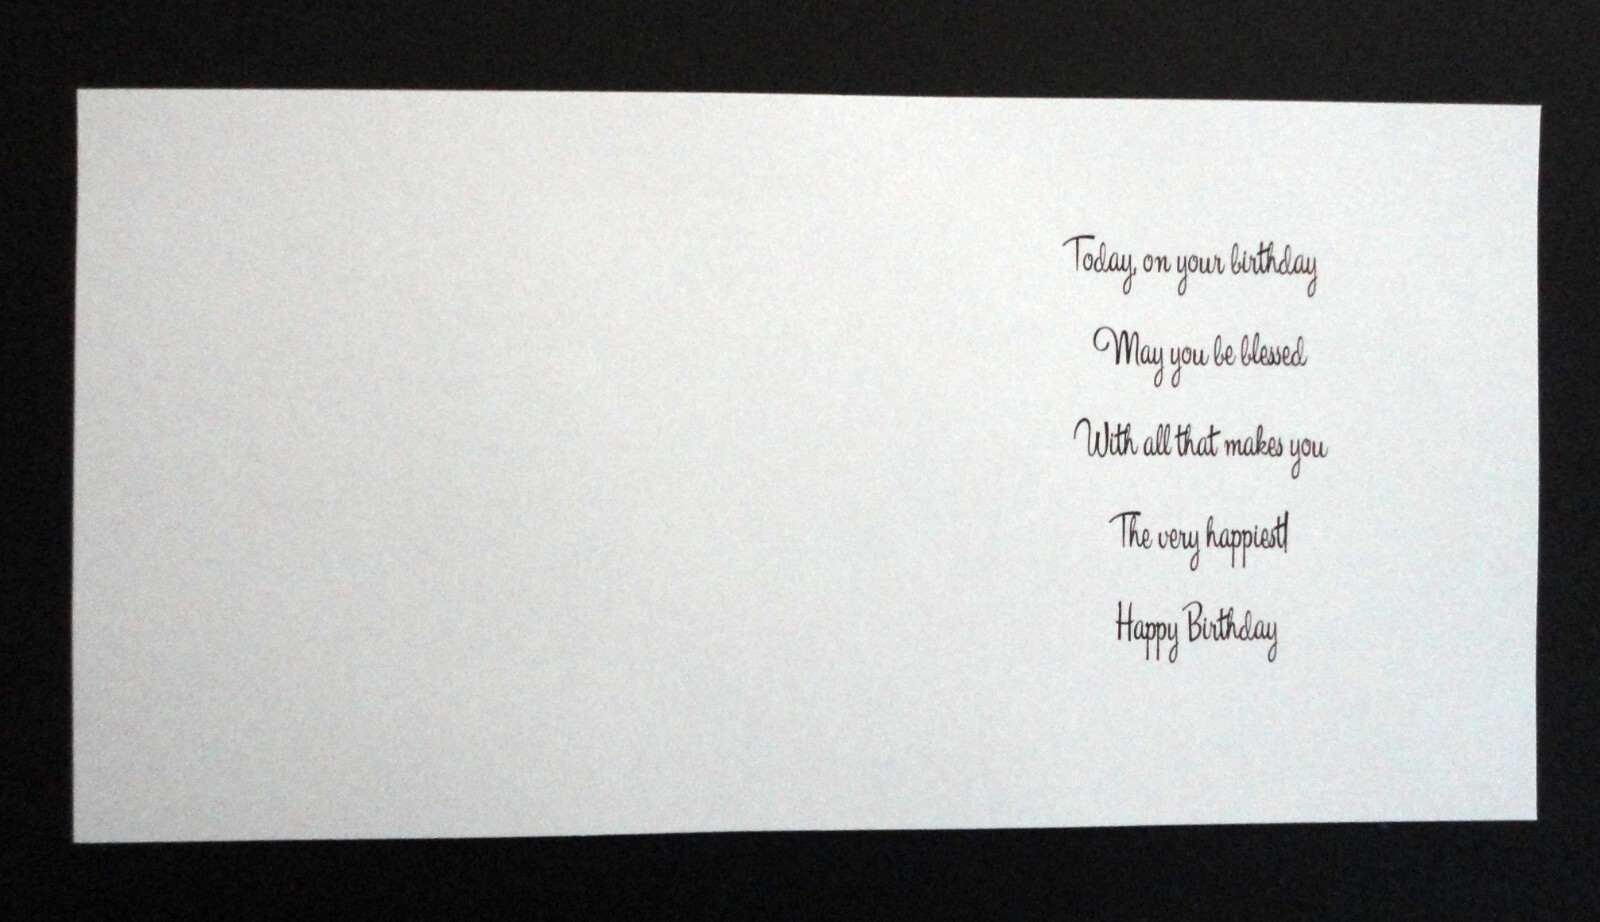 Today, on your birthday
May you be blessed
With all that makes you
The very happiest!
Happy Birthday